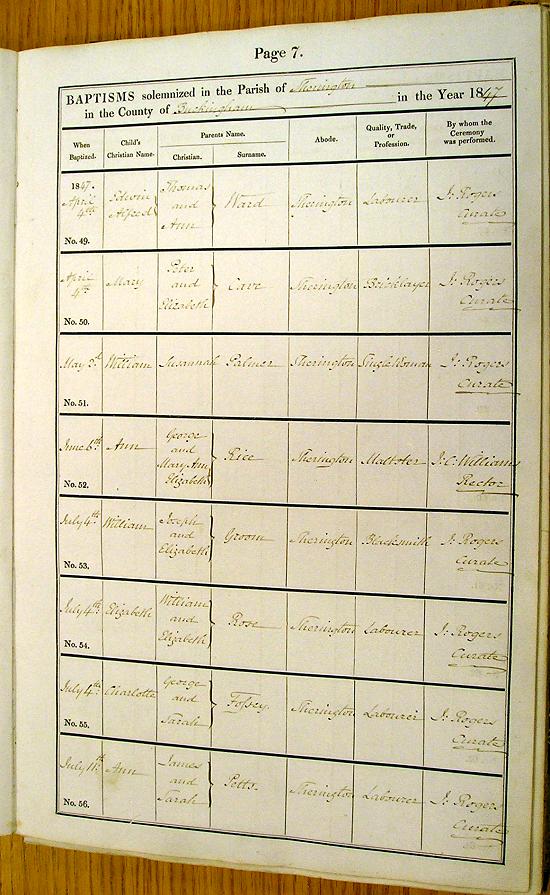 Page 7.
BAPTISMS solemnized in the Parish of Sherington
in the County of Buckingham in the Year 1847
When Baptized. Child's Christian Name. Parents Name. Christian. Surname. Abode. Quality, Trade, or Profession. By whom the Ceremony was performed.
1847. April 4th Edwin Alfred Thomas and Ann Ward Sherington Labourer J: Rogers Curate
No. 49.
April 4th Mary Peter and Elizabeth Cave Sherington Bricklayer J: Rogers Curate
No. 50.
May 3d William Susannah Palmer Sherington Single Woman J: Rogers Curate
No. 51.
June 6th Ann George and Mary Ann Elizabeth Rice Sherington Maltster J: C: Williams Rector
No. 52.
July 4th William Joseph and Elizabeth Groom Sherington Blacksmith J: Rogers Curate
No. 53.
July 4th Elizabeth William and Elizabeth Rose Sherington Labourer J: Rogers Curate
No. 54.
July 4th Charlotte George and Sarah Fossey. Sherington Labourer J: Rogers Curate
No. 55.
July 11th Ann James and Sarah Petts. Sherington Labourer J: Rogers Curate
No. 56.